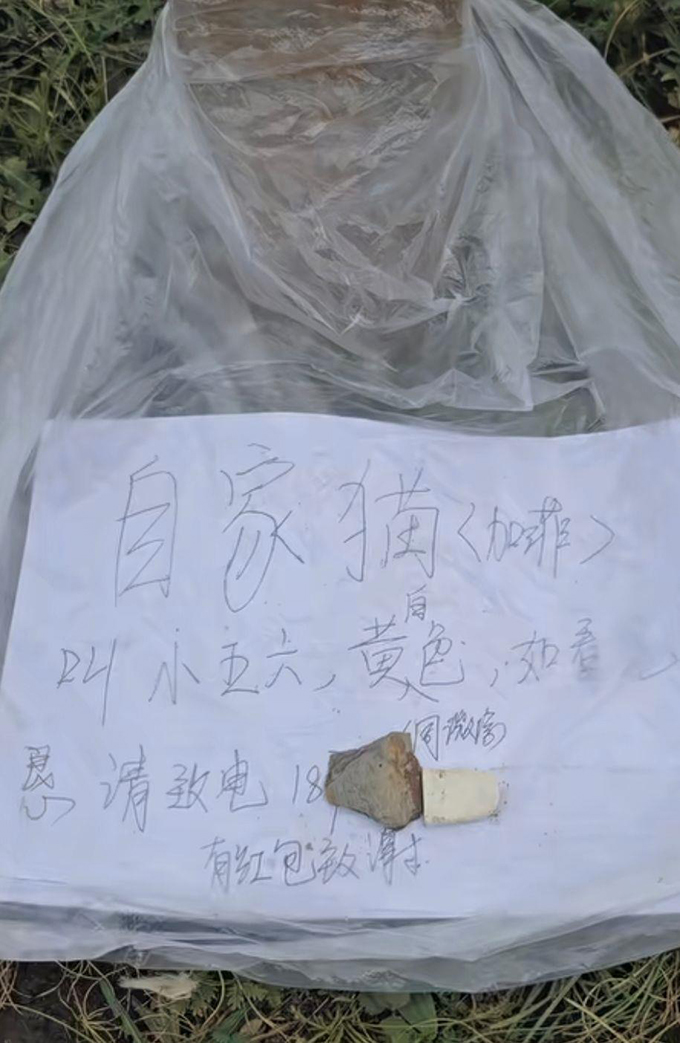 自家猫〈加菲〉
叫小五六，黄白色，如看
恳请致电18
同微信
有红包致谢